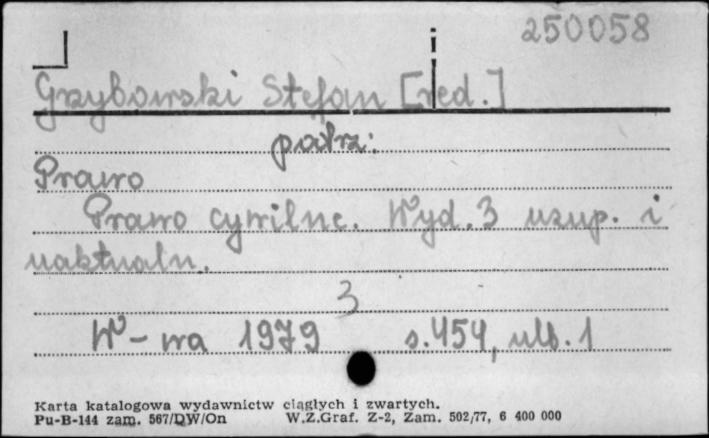 250058
i
Grzybowski Stefan [red.]
patrz:
Prawo
Prawo cywilne. Wyd. 3 uzup. i
uaktualn.
3
W-wa 1979 s. 454, nlb. 1
Karta katalogowa wydawnictw ciągłych i zwartych.
Pu-B-144 zam. 567/DW/On W.Z.Graf. Z-2, Zam. 502/77, 6 400 000